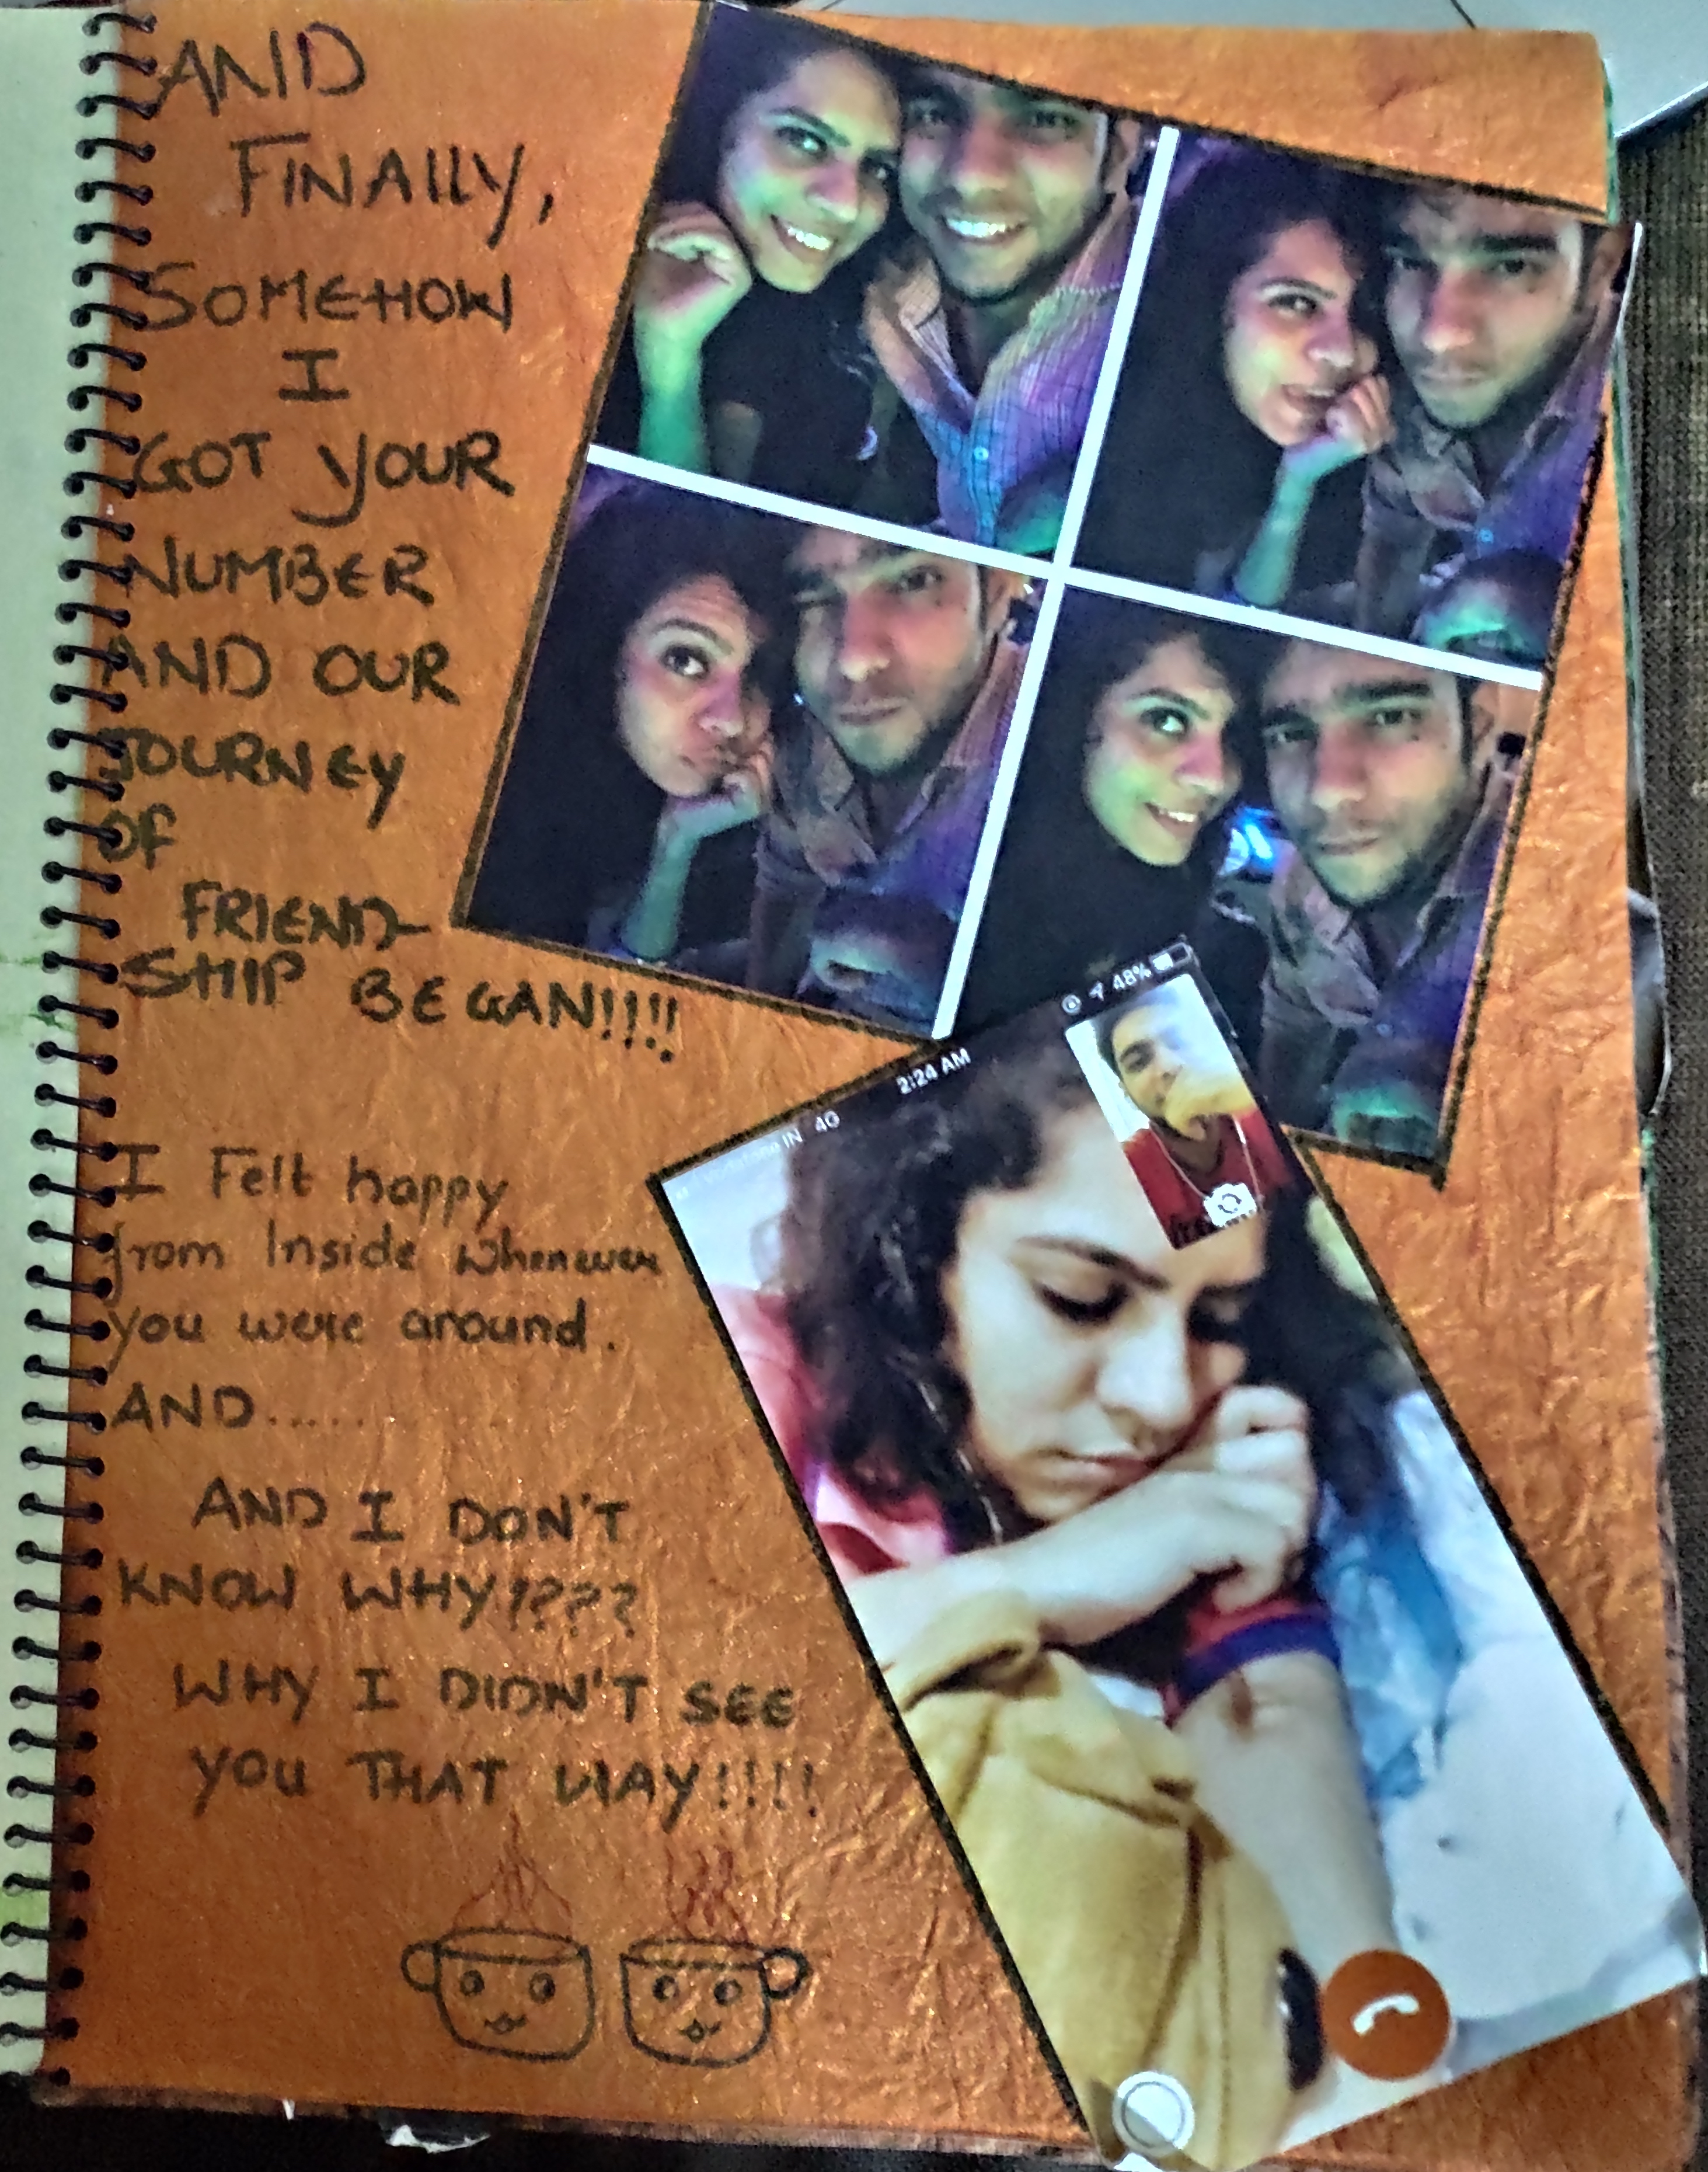 AND
FINALLY,
SOMEHOW
I
GOT YOUR
NUMBER
AND OUR
JOURNEY
OF
FRIEND-
SHIP BEGAN!!!!
I Felt happy
from Inside Whenever
you were around.
AND.....
AND I DON'T
KNOW WHY!???
WHY I DIDN'T SEE
YOU THAT WAY!!!!
48%
2:24 AM
Vodafone IN 4G